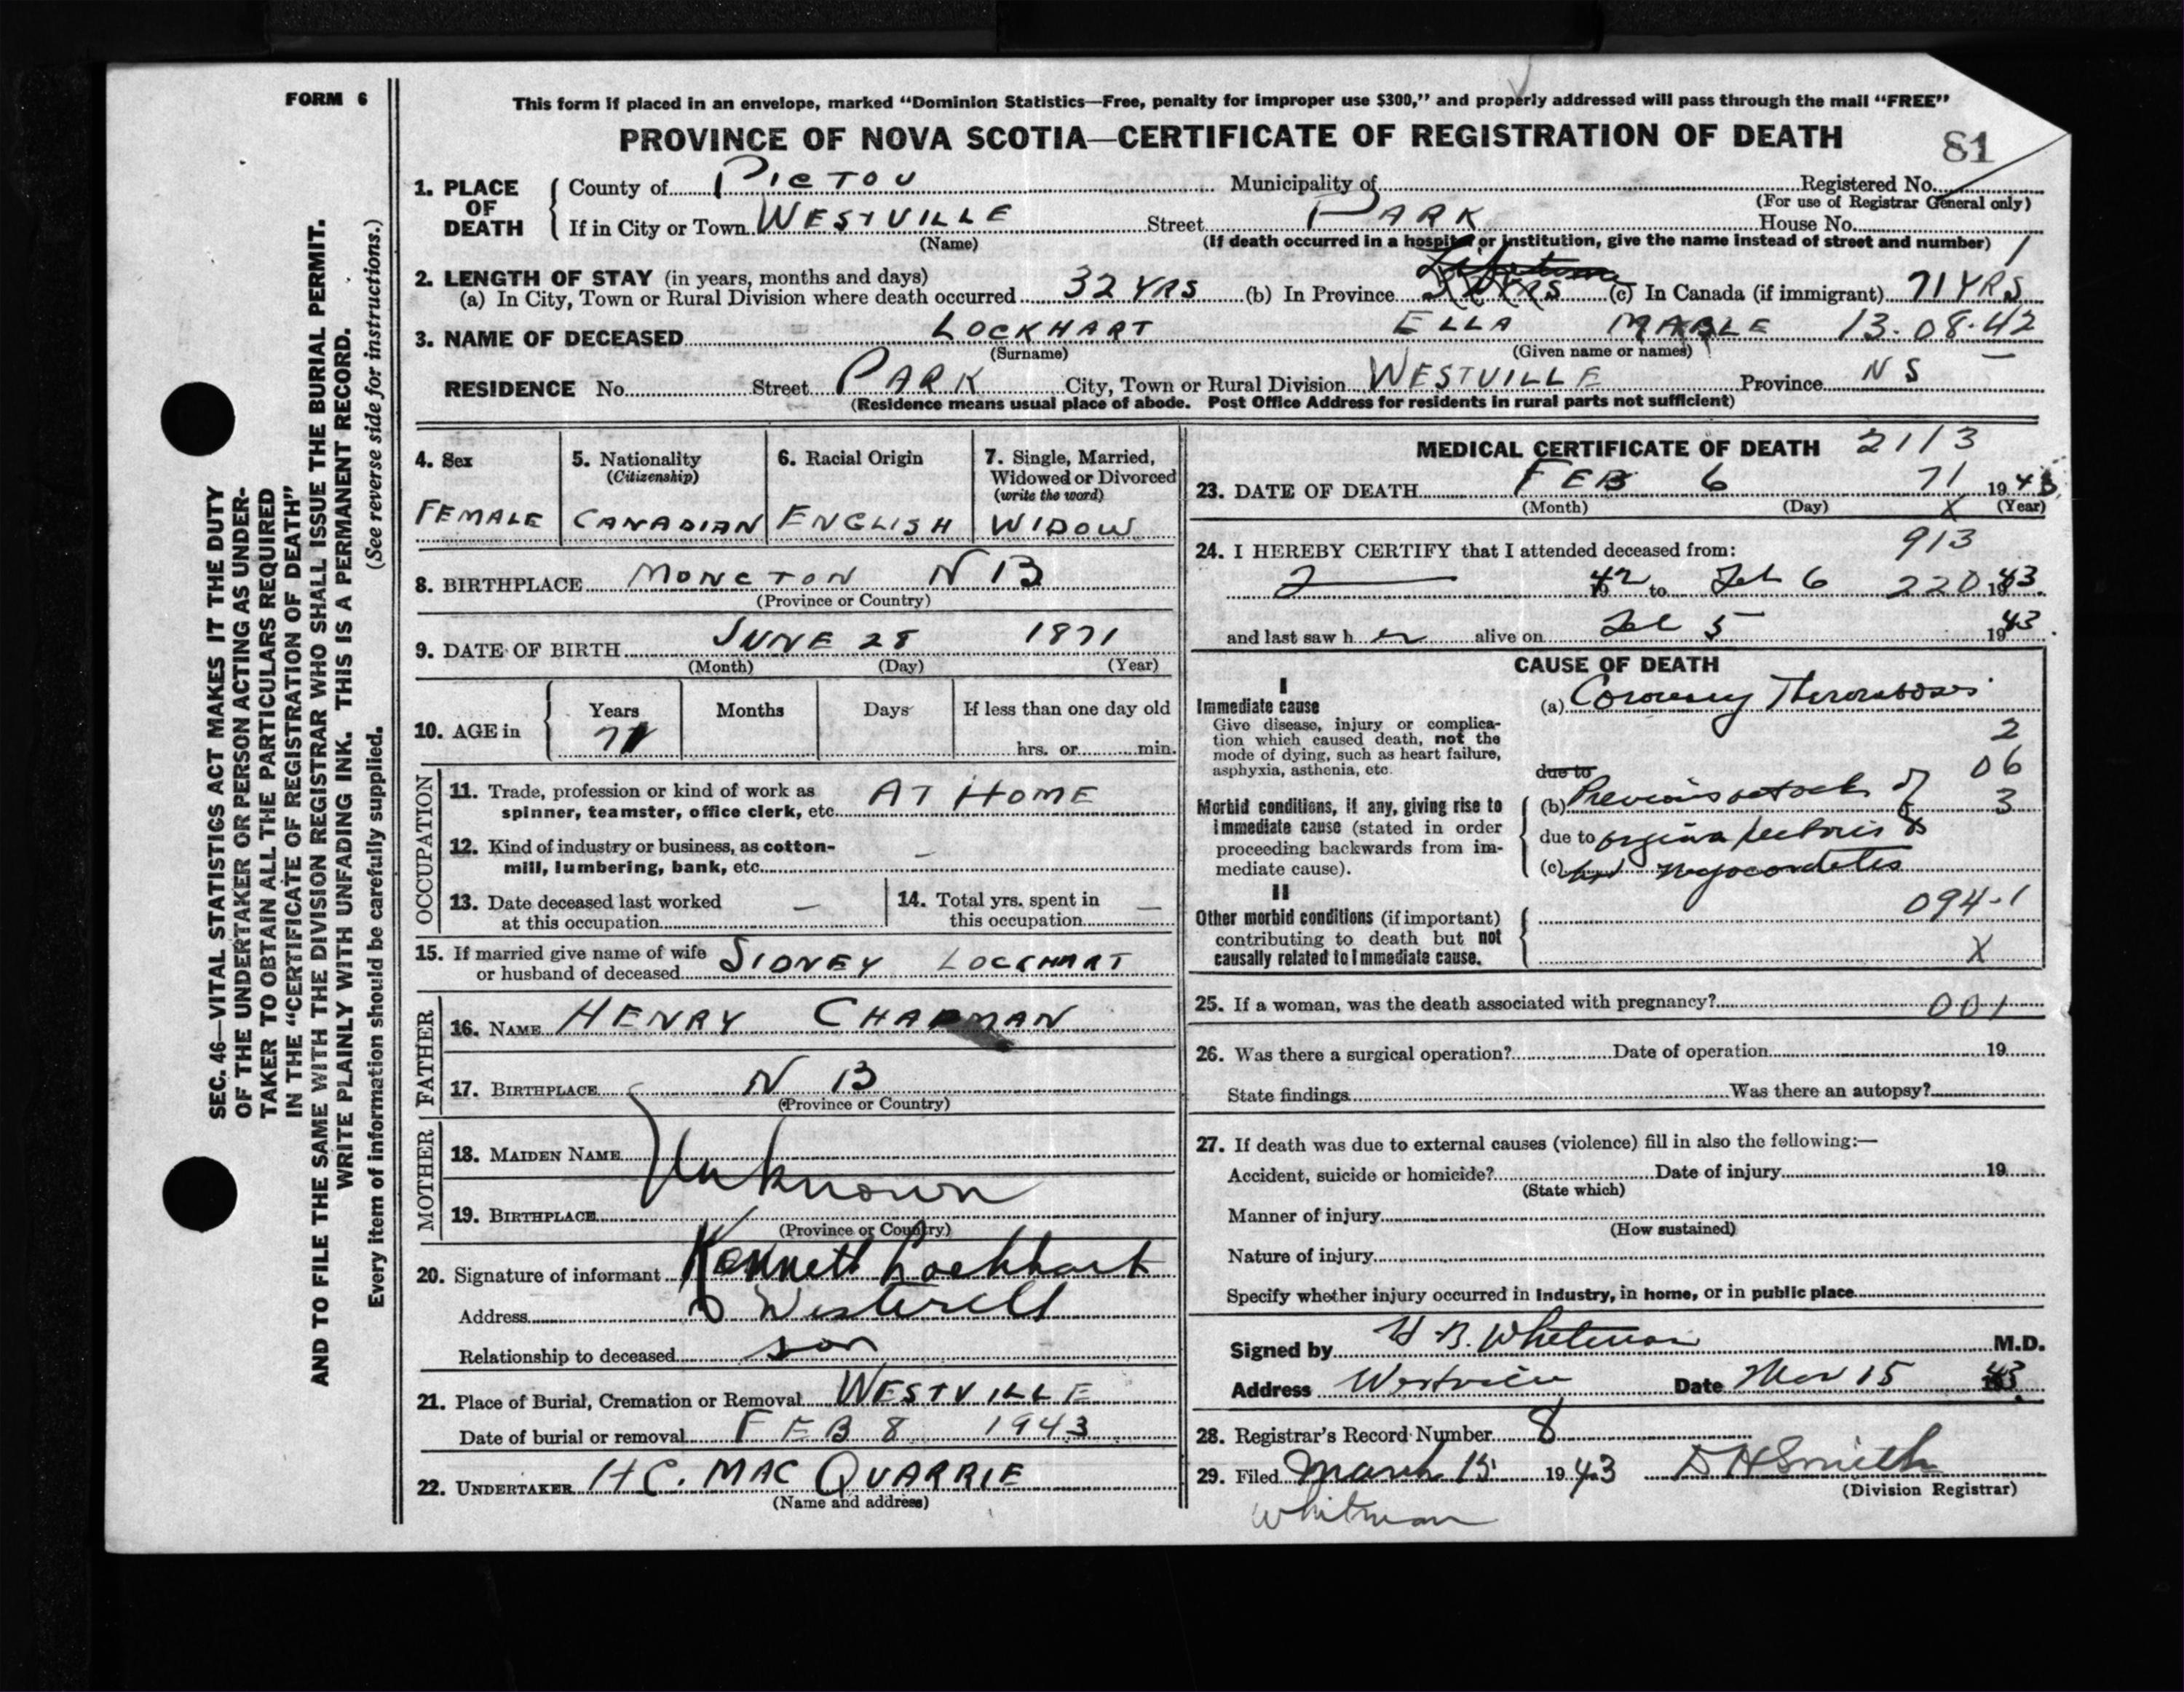 FORM 6
This form if placed in an envelope, marked “Dominion Statistics—Free, penalty for improper use $300,” and properly addressed will pass through the mail “FREE”
PROVINCE OF NOVA SCOTIA—CERTIFICATE OF REGISTRATION OF DEATH
81
1. PLACE OF DEATH
County of PICTOU Municipality of Registered No.
(For use of Registrar General only)
If in City or Town WESTVILLE Street PARK House No.
(Name) (If death occurred in a hospital or institution, give the name instead of street and number) 1
2. LENGTH OF STAY (in years, months and days)
(a) In City, Town or Rural Division where death occurred 32 YRS (b) In Province Lifetime 32 YRS (c) In Canada (if immigrant) 71 YRS
3. NAME OF DECEASED LOCKHART ELLA MABLE 13-08-42
(Surname) (Given name or names)
RESIDENCE No. Street PARK City, Town or Rural Division WESTVILLE Province N S
(Residence means usual place of abode. Post Office Address for residents in rural parts not sufficient)
4. Sex
FEMALE
5. Nationality
(Citizenship)
CANADIAN
6. Racial Origin
ENGLISH
7. Single, Married,
Widowed or Divorced
(write the word)
WIDOW
8. BIRTHPLACE MONCTON N B
(Province or Country)
9. DATE OF BIRTH JUNE 28 1871
(Month) (Day) (Year)
10. AGE in
Years Months Days If less than one day old
71 hrs. or min.
OCCUPATION
11. Trade, profession or kind of work as
spinner, teamster, office clerk, etc. AT HOME
12. Kind of industry or business, as cotton-
mill, lumbering, bank, etc. —
13. Date deceased last worked
at this occupation —
14. Total yrs. spent in
this occupation —
15. If married give name of wife
or husband of deceased SIDNEY LOCKHART
FATHER
16. NAME HENRY CHAPMAN
17. BIRTHPLACE N B
(Province or Country)
MOTHER
18. MAIDEN NAME
Unknown
19. BIRTHPLACE
(Province or Country)
20. Signature of informant Kenneth Lockhart
Address
Relationship to deceased son
21. Place of Burial, Cremation or Removal WESTVILLE
Date of burial or removal FEB 8 1943
22. UNDERTAKER H C. MAC QUARRIE
(Name and address)
MEDICAL CERTIFICATE OF DEATH 2113
23. DATE OF DEATH FEB 6 71 1943
(Month) (Day) X (Year)
24. I HEREBY CERTIFY that I attended deceased from: 913
42 to Feb 6 220 1943
and last saw h er alive on Feb 5 1943
CAUSE OF DEATH
I
Immediate cause
Give disease, injury or complica-
tion which caused death, not the
mode of dying, such as heart failure,
asphyxia, asthenia, etc.
(a) Coronary Thrombosis
2
due to 06
Morbid conditions, if any, giving rise to
immediate cause (stated in order
proceeding backwards from im-
mediate cause).
(b) Previous attacks of 3
due to angina pectoris &
(c) myocarditis
II
Other morbid conditions (if important)
contributing to death but not
causally related to immediate cause.
094-1
X
25. If a woman, was the death associated with pregnancy? 001
26. Was there a surgical operation? Date of operation 19
State findings Was there an autopsy?
27. If death was due to external causes (violence) fill in also the following:—
Accident, suicide or homicide? Date of injury 19
(State which)
Manner of injury
(How sustained)
Nature of injury
Specify whether injury occurred in industry, in home, or in public place
Signed by H B. Whitman M.D.
Address Westville Date Mar 15 43
28. Registrar's Record Number 8
29. Filed March 15 1943 D H Smith
(Division Registrar)
Whitman
SEC. 46—VITAL STATISTICS ACT MAKES IT THE DUTY
OF THE UNDERTAKER OR PERSON ACTING AS UNDER-
TAKER TO OBTAIN ALL THE PARTICULARS REQUIRED
IN THE “CERTIFICATE OF REGISTRATION OF DEATH”
AND TO FILE THE SAME WITH THE DIVISION REGISTRAR WHO SHALL ISSUE THE BURIAL PERMIT.
WRITE PLAINLY WITH UNFADING INK. THIS IS A PERMANENT RECORD.
Every item of information should be carefully supplied. (See reverse side for instructions.)